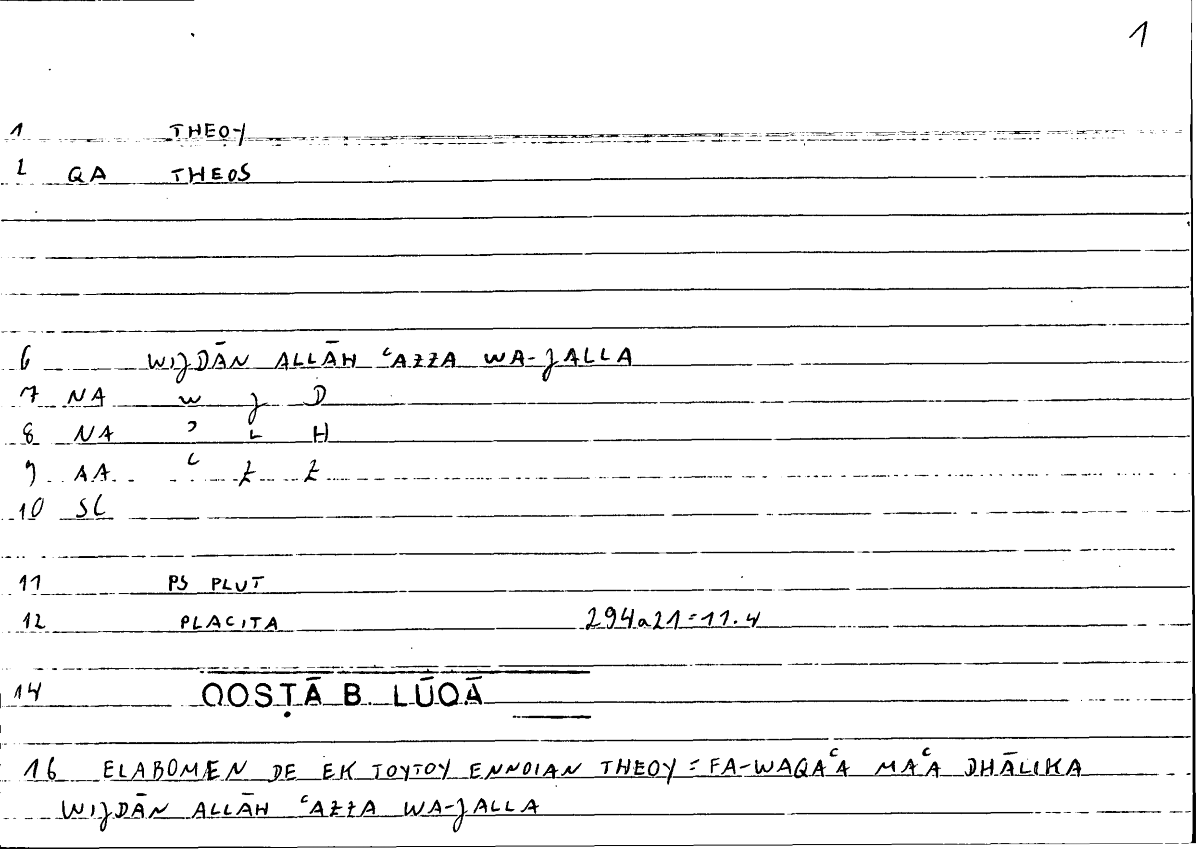 1
1 THEOY
2 QA THEOS
6 WIJDĀN ALLĀH ʿAZZA WA-JALLA
7 NA W J D
8 NA ʾ L H
9 AA ʿ Z Z
10 SL
11 PS PLUT
12 PLACITA 294a21=11.4
14 QOSṬĀ B. LŪQĀ
16 ELABOMEN DE EK TOYTOY ENNOIAN THEOY = FA-WAQAʿA MAʿA DHĀLIKA
WIJDĀN ALLĀH ʿAZZA WA-JALLA